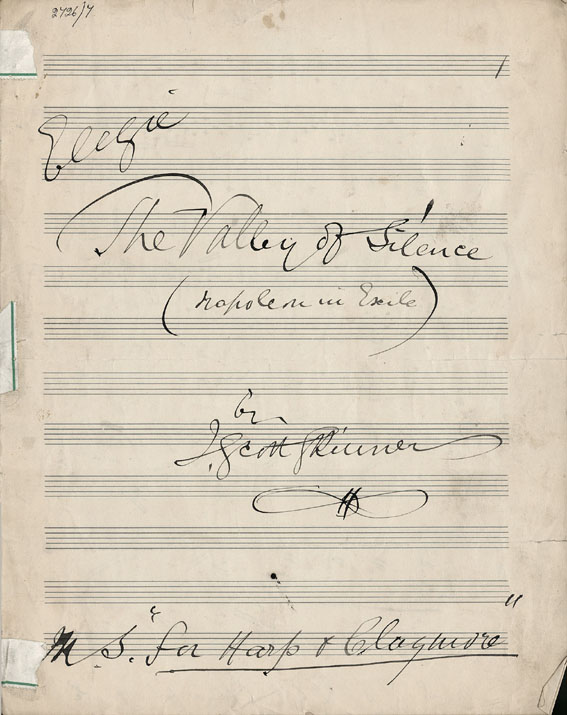 2726/7
1
Elegie
The Valley of Silence
(Napoleon in Exile)
by
J. Scott Skinner
MS. "For Harp & Claymore"